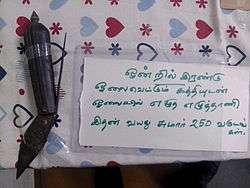 ஒன்றில் இரண்டு
ஓலைவெட்டும் கத்தியுடன்
ஓலையில் எழுத எழுத்தாணி
இதன் வயது சுமார் 250 வருடங்
கள்